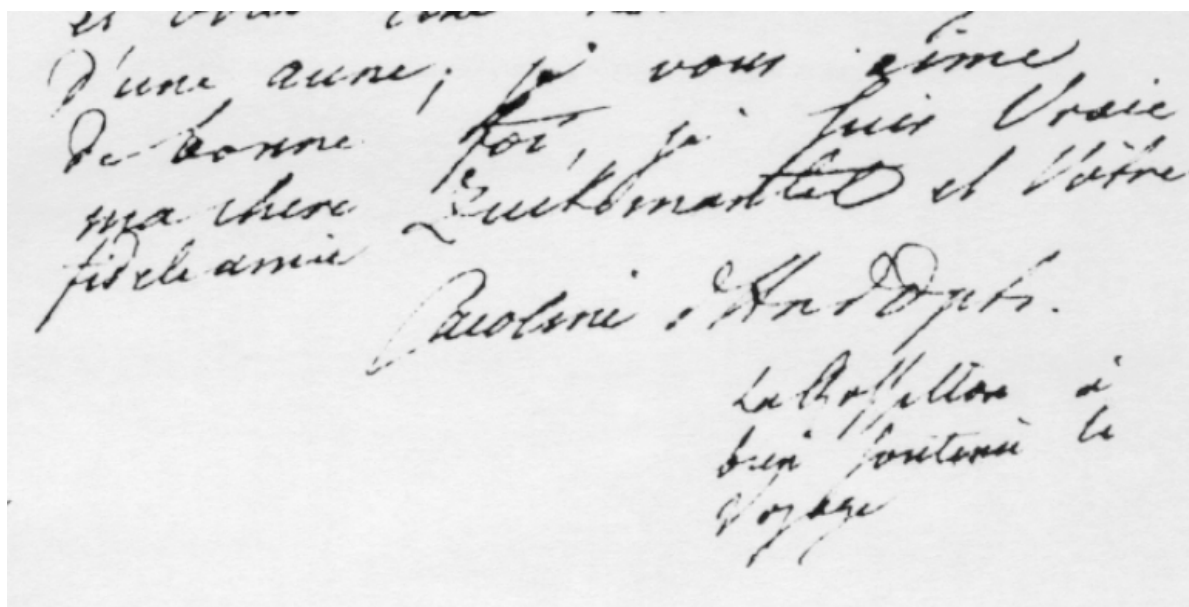 d'une aune; je vous aime
de bonne foi, je suis vraie
ma chere Zuckmantel et Vôtre
fidele amie
Caroline d'Andlau
à
bien soutenu le
voyage